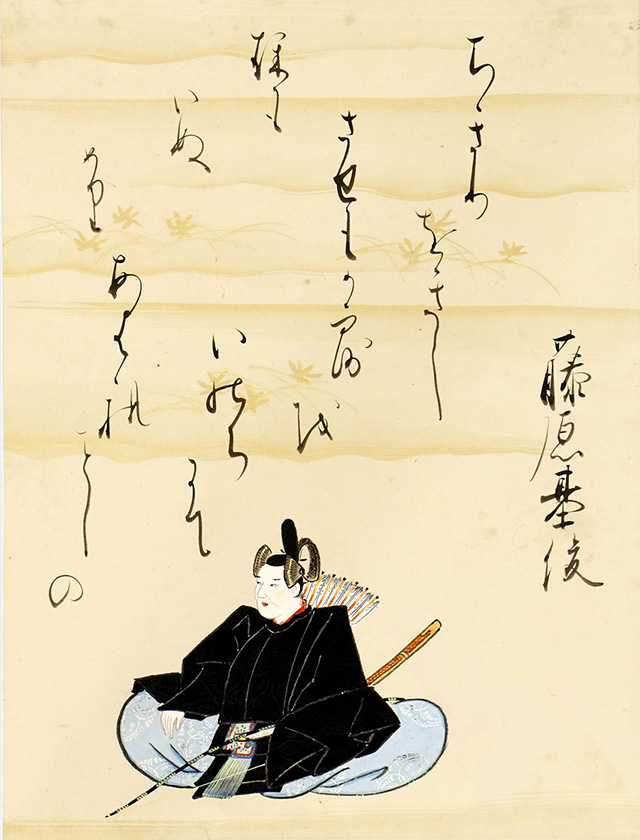 藤原基俊
ちきり
をきし
させもか露
を
いのち
にて
あはれ
ことし
の
秋も
いぬ
めり